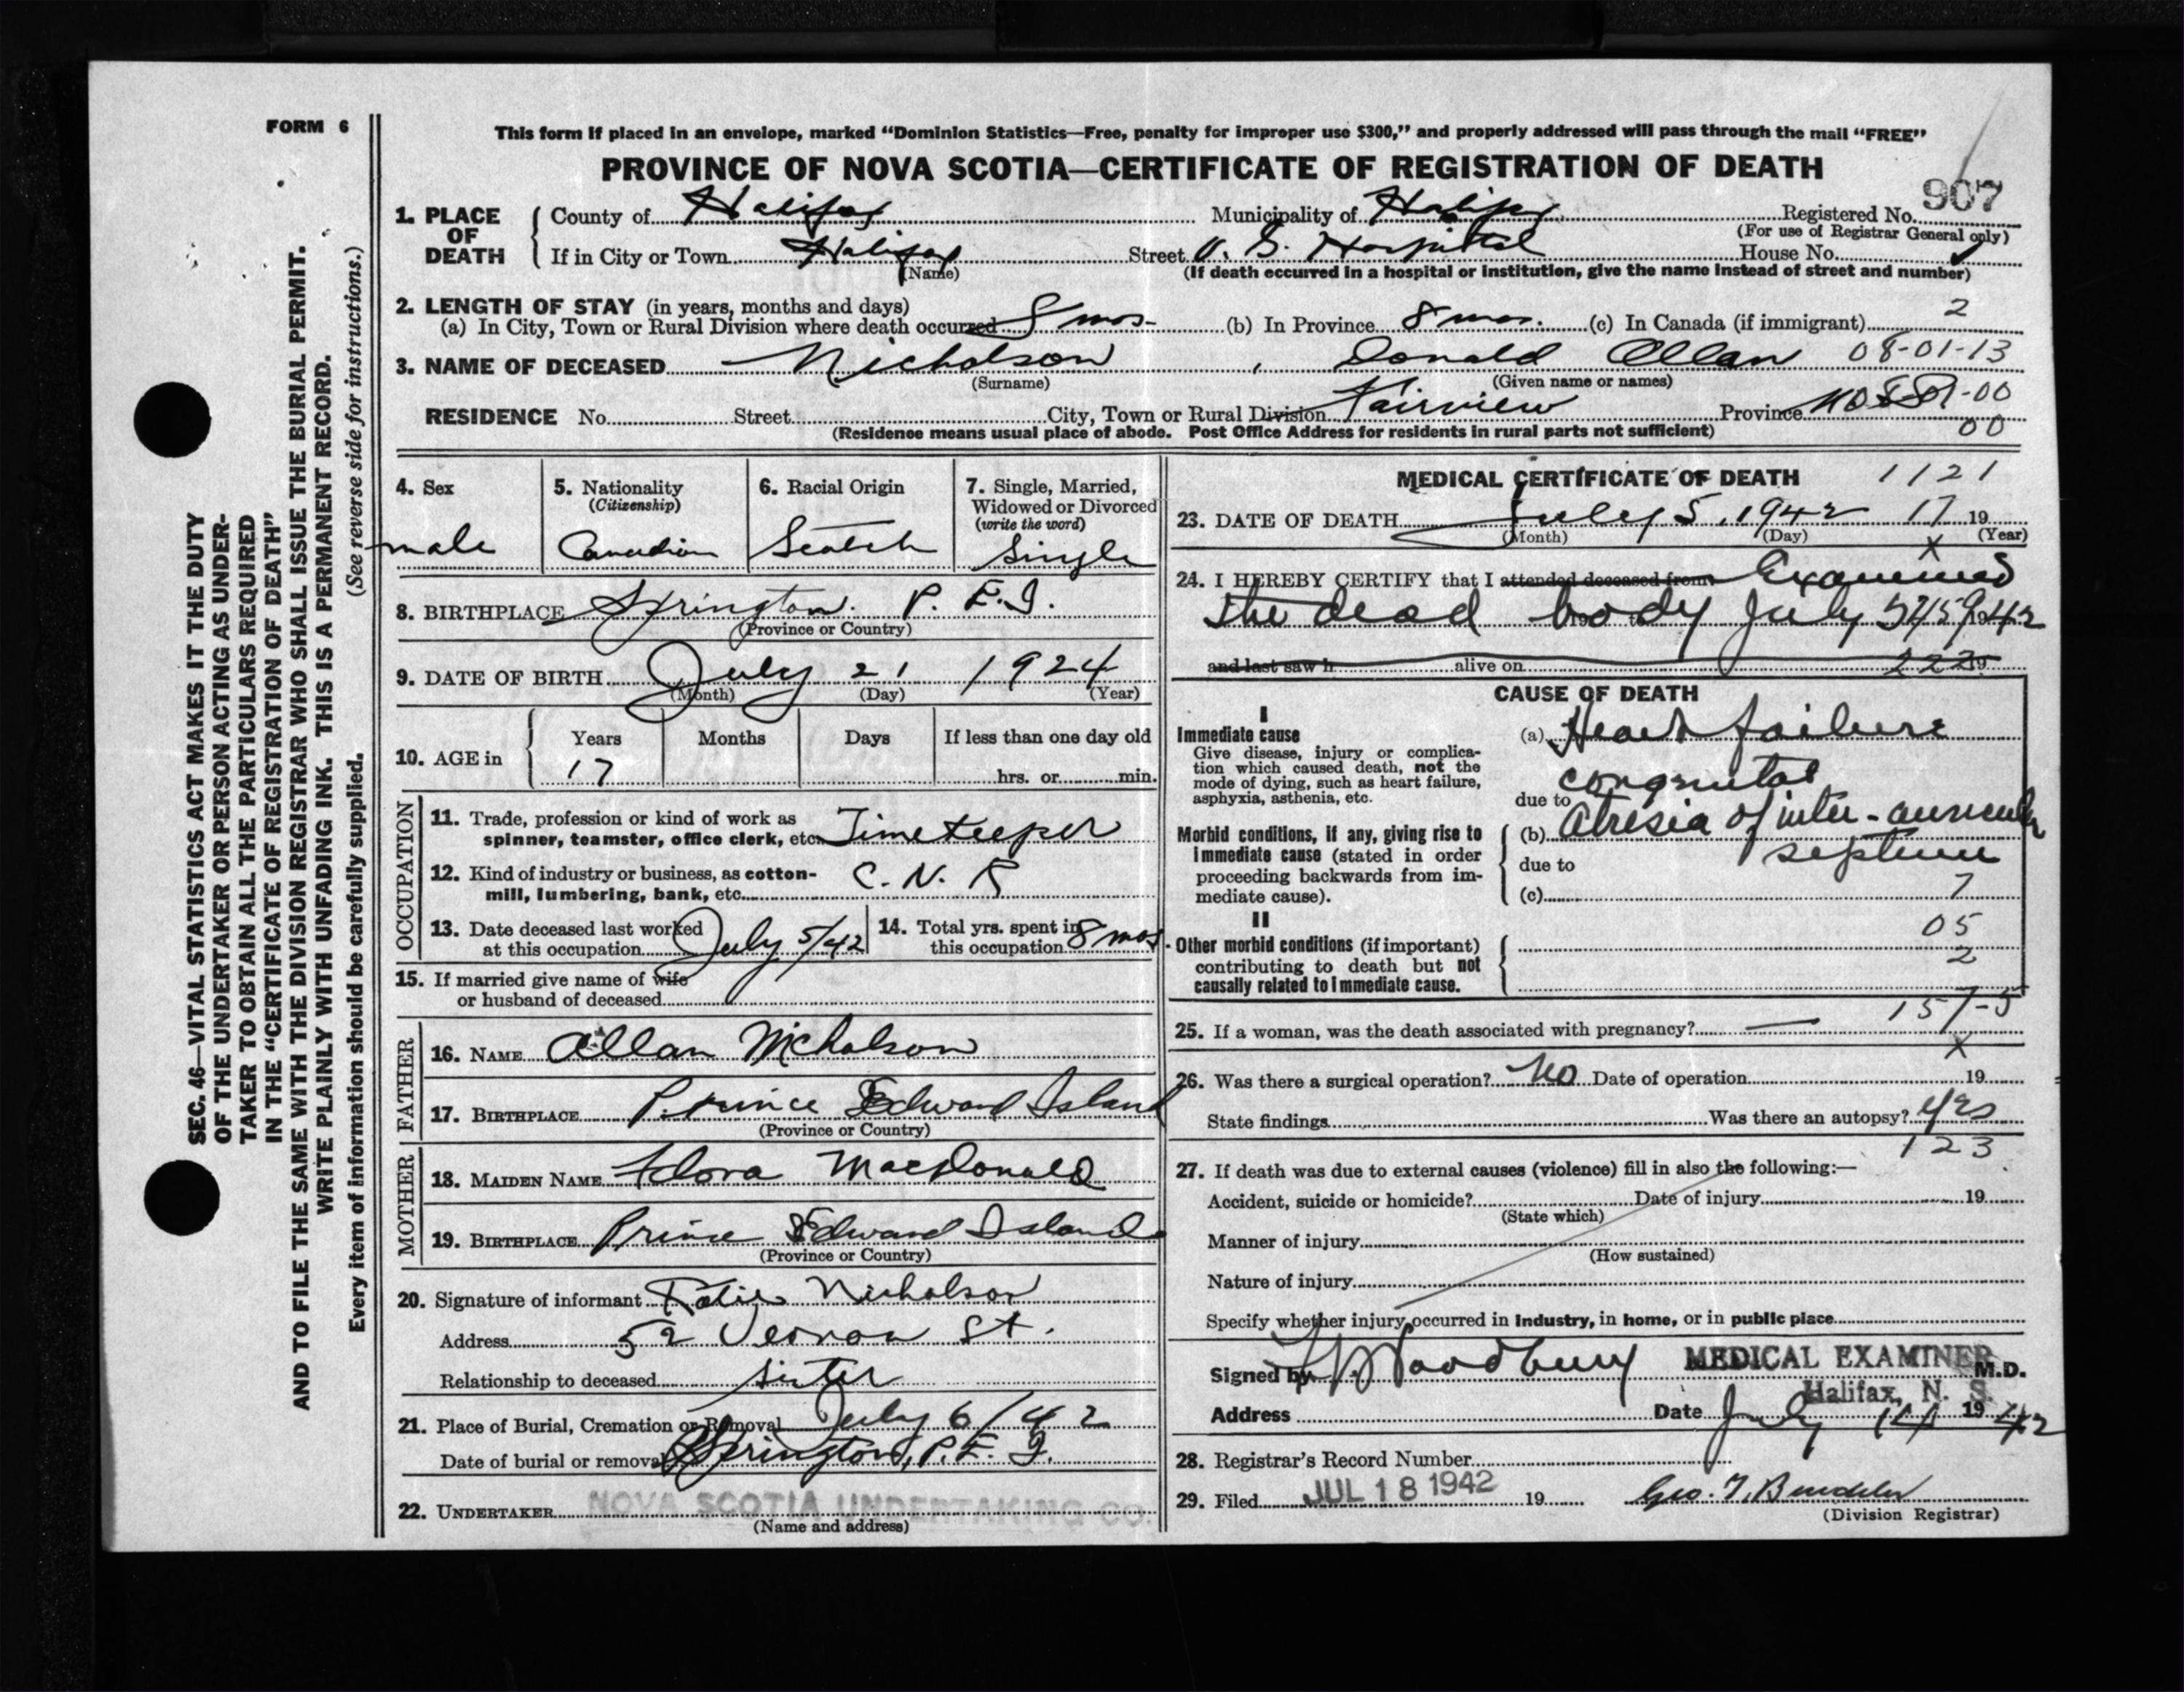 FORM 6
This form if placed in an envelope, marked "Dominion Statistics—Free, penalty for improper use $300," and properly addressed will pass through the mail "FREE"
PROVINCE OF NOVA SCOTIA—CERTIFICATE OF REGISTRATION OF DEATH
907
1. PLACE OF DEATH County of Halifax Municipality of Halifax Registered No.
(For use of Registrar General only)
If in City or Town Halifax Street V. G. Hospital House No.
(Name) (If death occurred in a hospital or institution, give the name instead of street and number)
2. LENGTH OF STAY (in years, months and days)
(a) In City, Town or Rural Division where death occurred 8 mos. (b) In Province 8 mos. (c) In Canada (if immigrant) 2
3. NAME OF DECEASED Nicholson, Donald Allan 08-01-13
(Surname) (Given name or names)
RESIDENCE No. Street City, Town or Rural Division Fairview Province
(Residence means usual place of abode. Post Office Address for residents in rural parts not sufficient) 00
4. Sex male
5. Nationality (Citizenship) Canadian
6. Racial Origin Scotch
7. Single, Married, Widowed or Divorced (write the word) Single
8. BIRTHPLACE Springton. P. E. I.
(Province or Country)
9. DATE OF BIRTH July 21 1924
(Month) (Day) (Year)
10. AGE in Years Months Days If less than one day old
17 hrs. or min.
OCCUPATION
11. Trade, profession or kind of work as spinner, teamster, office clerk, etc. Time keeper
12. Kind of industry or business, as cotton-mill, lumbering, bank, etc. C. N. R
13. Date deceased last worked at this occupation July 5/42
14. Total yrs. spent in this occupation 8 mos.
15. If married give name of wife or husband of deceased
FATHER
16. NAME Allan Nicholson
17. BIRTHPLACE Prince Edward Island
(Province or Country)
MOTHER
18. MAIDEN NAME Flora MacDonald
19. BIRTHPLACE Prince Edward Island
(Province or Country)
20. Signature of informant Katie Nicholson
Address 52 Vernon St.
Relationship to deceased sister
21. Place of Burial, Cremation or Removal July 6/42
Date of burial or removal Springton, P. E. I.
22. UNDERTAKER NOVA SCOTIA UNDERTAKING CO.
(Name and address)
MEDICAL CERTIFICATE OF DEATH 1121
23. DATE OF DEATH July 5, 1942 17 19
(Month) (Day) (Year)
x
24. I HEREBY CERTIFY that I attended deceased from Examined
the dead body July 5 1942
and last saw h alive on 19
CAUSE OF DEATH
I
Immediate cause
Give disease, injury or complication which caused death, not the mode of dying, such as heart failure, asphyxia, asthenia, etc.
(a) Heart failure
congenital
due to
Morbid conditions, if any, giving rise to immediate cause (stated in order proceeding backwards from immediate cause).
(b) Atresia of inter-auricular
due to septum
(c) 7
II
05
Other morbid conditions (if important) contributing to death but not causally related to immediate cause. 2
157-5
25. If a woman, was the death associated with pregnancy? —
x
26. Was there a surgical operation? No Date of operation 19
State findings Was there an autopsy? yes
123
27. If death was due to external causes (violence) fill in also the following:—
Accident, suicide or homicide? Date of injury 19
(State which)
Manner of injury
(How sustained)
Nature of injury
Specify whether injury occurred in industry, in home, or in public place
Signed by Woodbury MEDICAL EXAMINER M.D.
Halifax, N. S.
Address Date July 14 1942
28. Registrar's Record Number
29. Filed JUL 18 1942 19
(Division Registrar)
SEC. 46—VITAL STATISTICS ACT MAKES IT THE DUTY
OF THE UNDERTAKER OR PERSON ACTING AS UNDER-
TAKER TO OBTAIN ALL THE PARTICULARS REQUIRED
IN THE "CERTIFICATE OF REGISTRATION OF DEATH"
AND TO FILE THE SAME WITH THE DIVISION REGISTRAR WHO SHALL ISSUE THE BURIAL PERMIT.
WRITE PLAINLY WITH UNFADING INK. THIS IS A PERMANENT RECORD.
Every item of information should be carefully supplied. (See reverse side for instructions.)